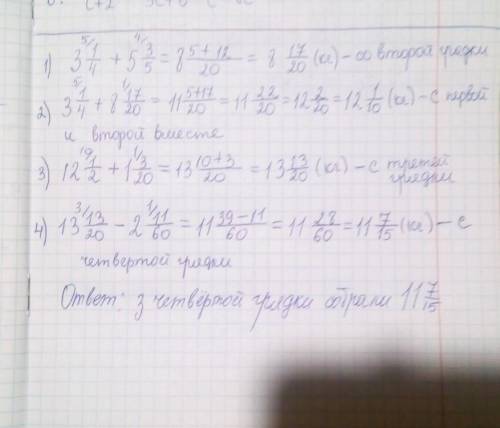 1) 3 1/4 + 5 3/5 = 8 5+12/20 = 8 17/20 (кг) – со второй грядки
2) 3 1/4 + 8 17/20 = 11 5+17/20 = 11 22/20 = 12 2/20 = 12 1/10 (кг) – с первой
и второй вместе
3) 12 1/2 + 1 3/20 = 13 10+3/20 = 13 13/20 (кг) – с третьей
грядки
4) 13 13/20 – 2 11/60 = 11 39–11/60 = 11 28/60 = 11 7/15 (кг) – с
четвертой грядки
Ответ: з четвёртой грядки собрали 11 7/15